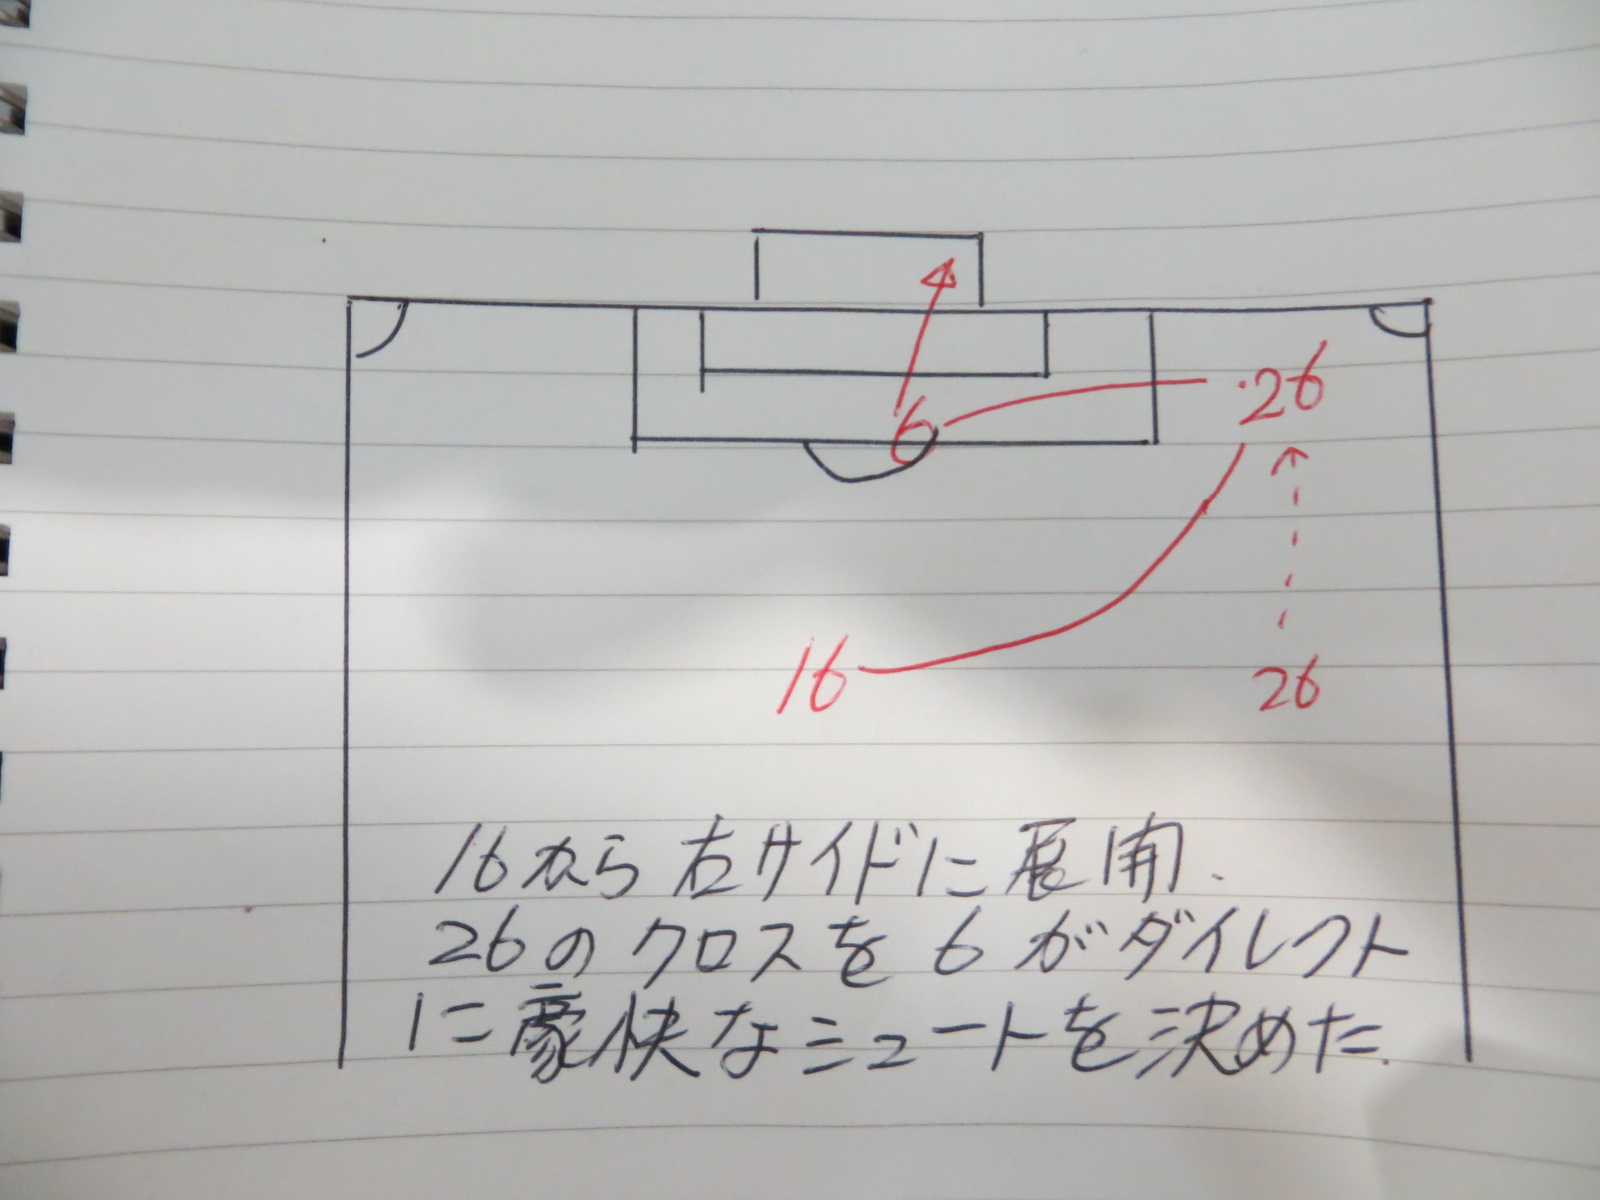 26
6
16
26
16から右サイドに展開.
26のクロスを6がダイレクト
に豪快なシュートを決めた.